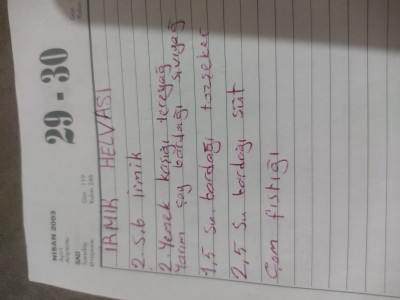 29 - 30
NİSAN 2003
SALI
İRMİK HELVASI
2 S.b İrmik
2 Yemek kaşığı tereyağ
Yarım çay bardağı sıvıyağ
1,5 Su bardağı tozşeker
2,5 Su bardağı süt
Çam fıstığı